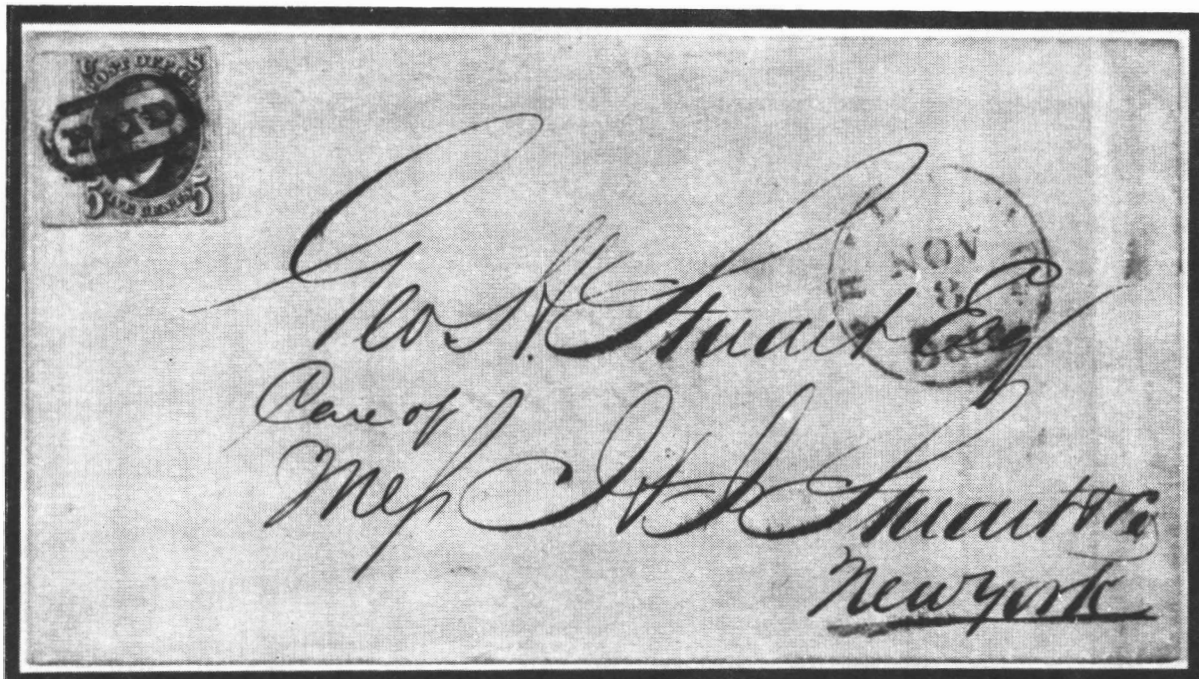 POST OFFICE
PAID
5 FIVE CENTS 5
NOV
8
5cts
Geo H. Stuart Esq
Care of
Mess J & J Stuart & Co
New York